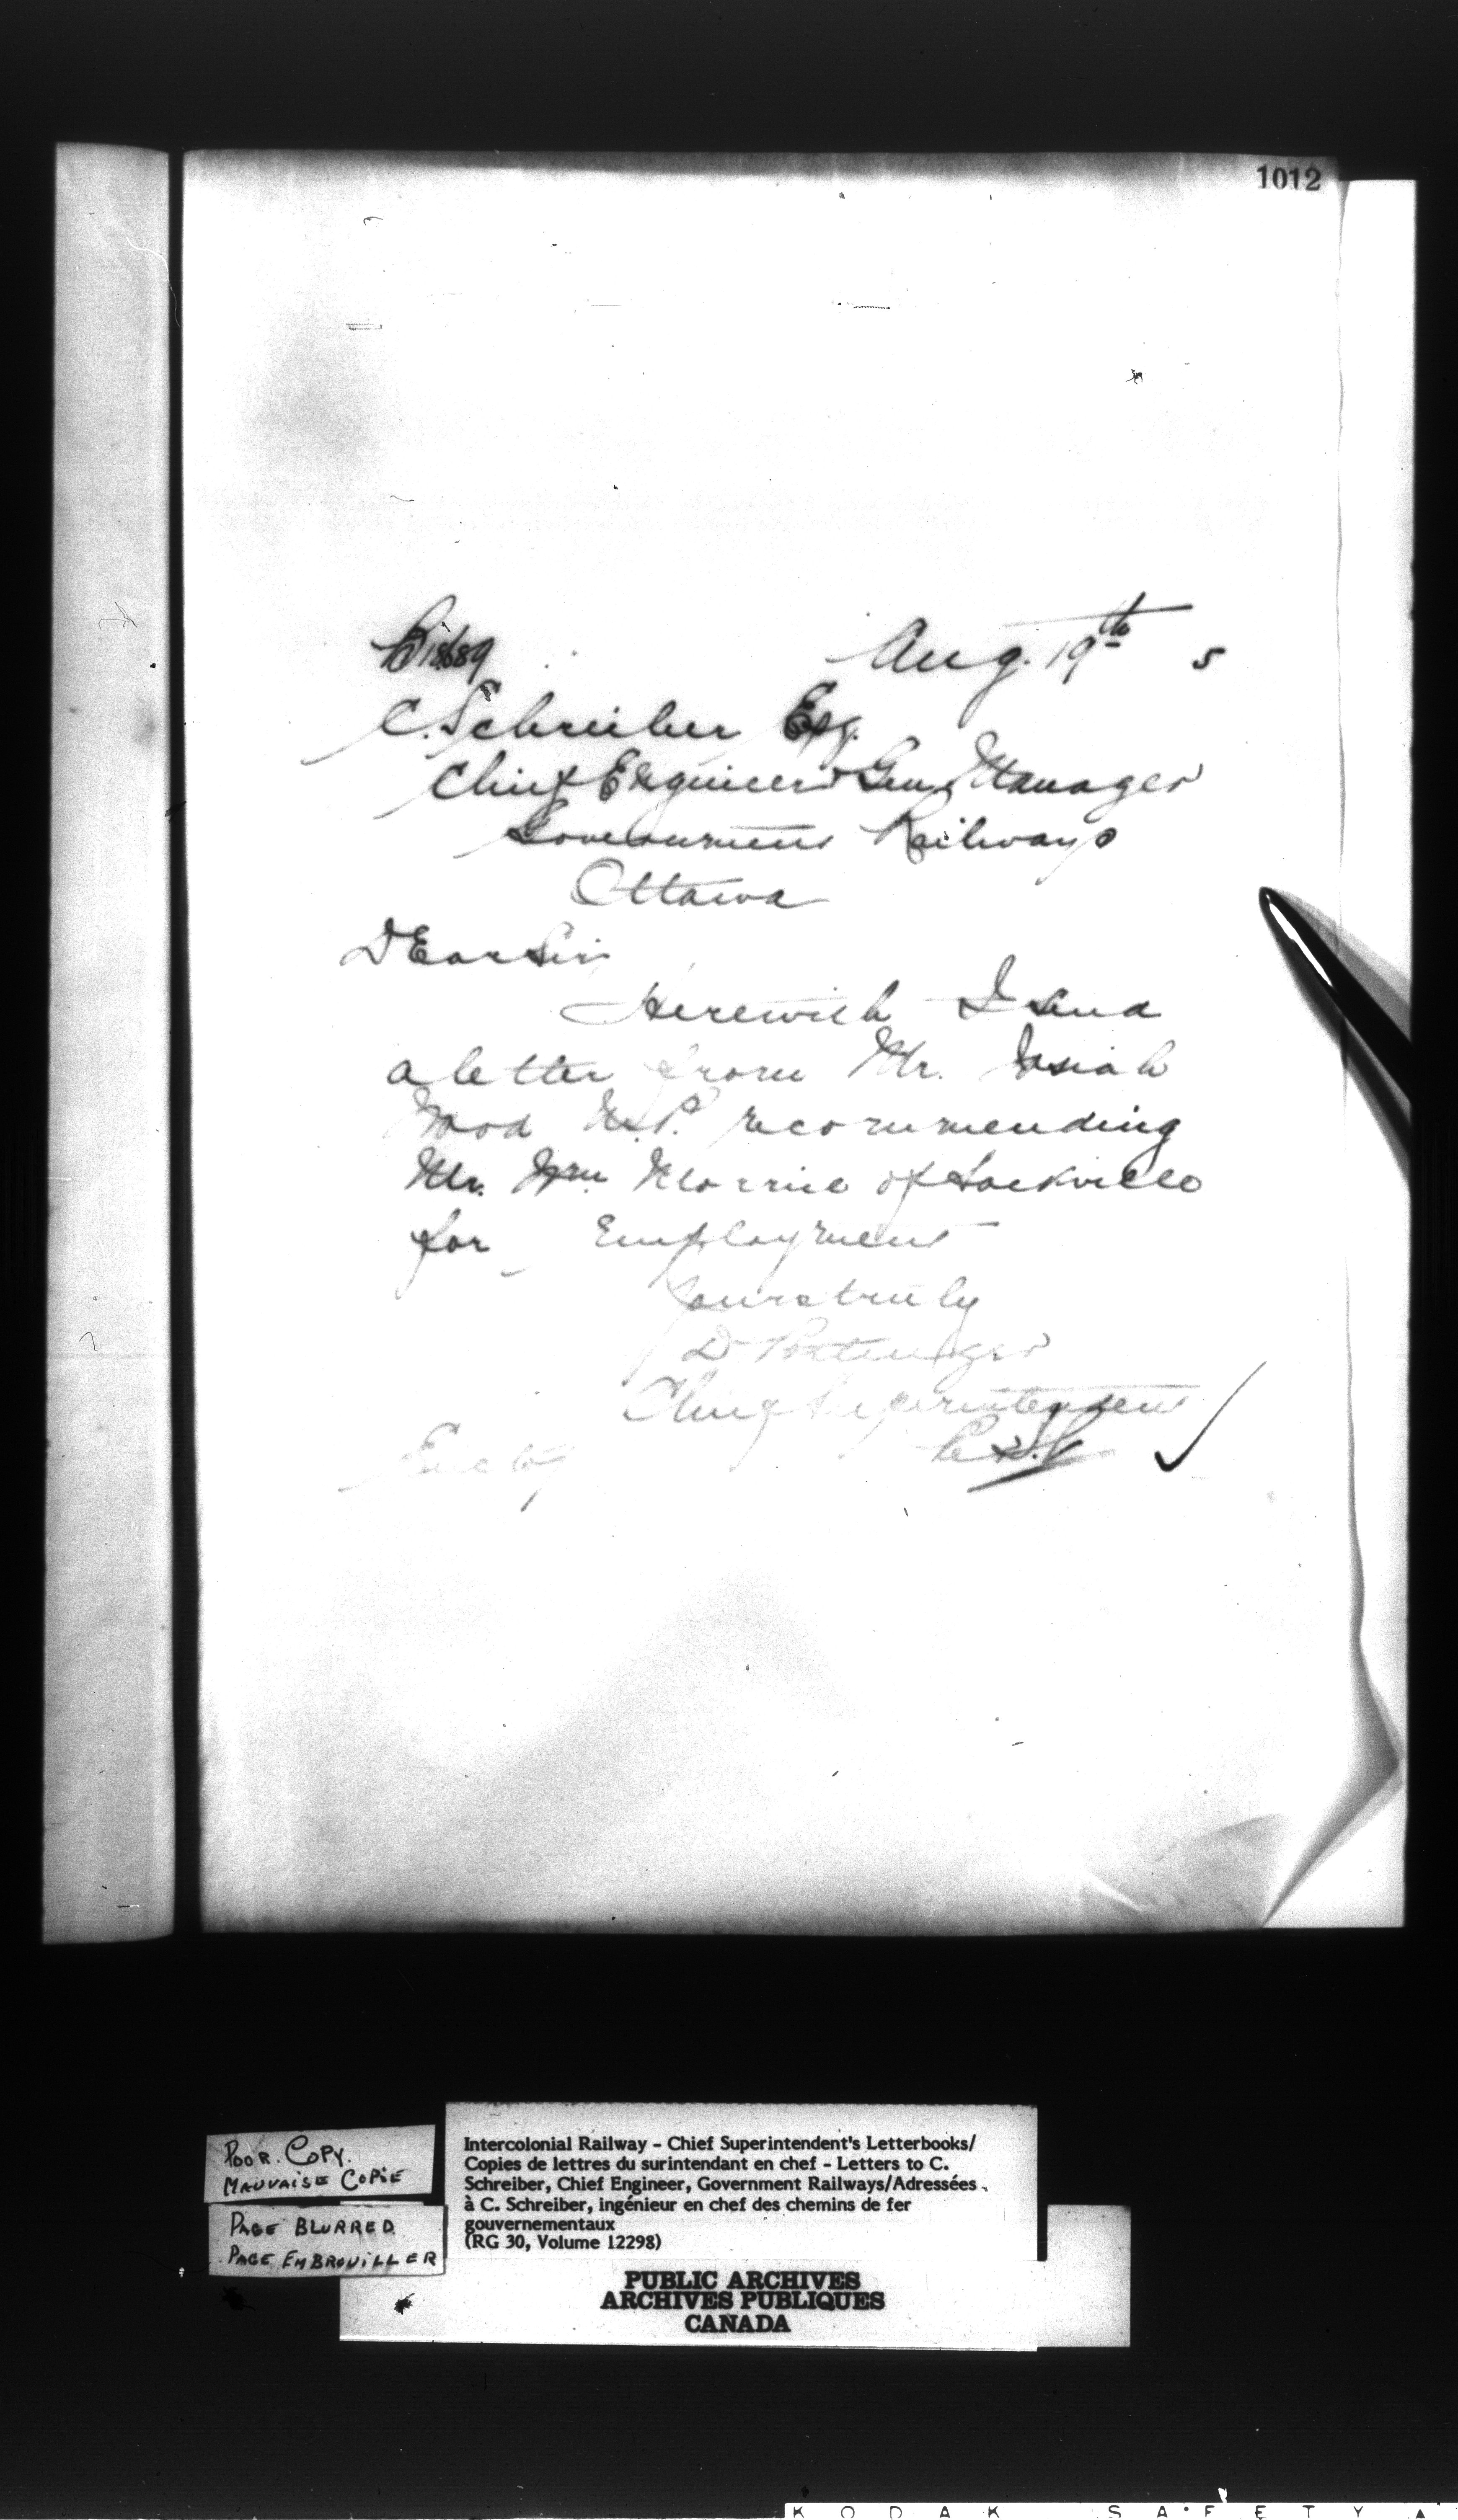 1012
Aug. 19th 5
C. Schreiber Esq.
Chief Engineer & Gen. Manager
Government Railways
Ottawa
DEar Sir
Herewith I send
a letter from Mr. Josiah
Wood M.P. recommending
Mr. Wm Morrice of Sackville
for Employment
Yours truly
D Pottinger
Chief Superintendent
POOR COPY.
MAUVAISE COPIE
PAGE BLURRED
PAGE EMBROUILLER
Intercolonial Railway - Chief Superintendent's Letterbooks/
Copies de lettres du surintendant en chef - Letters to C.
Schreiber, Chief Engineer, Government Railways/Adressées
à C. Schreiber, ingénieur en chef des chemins de fer
gouvernementaux
(RG 30, Volume 12298)
PUBLIC ARCHIVES
ARCHIVES PUBLIQUES
CANADA
KODAK SAFETY